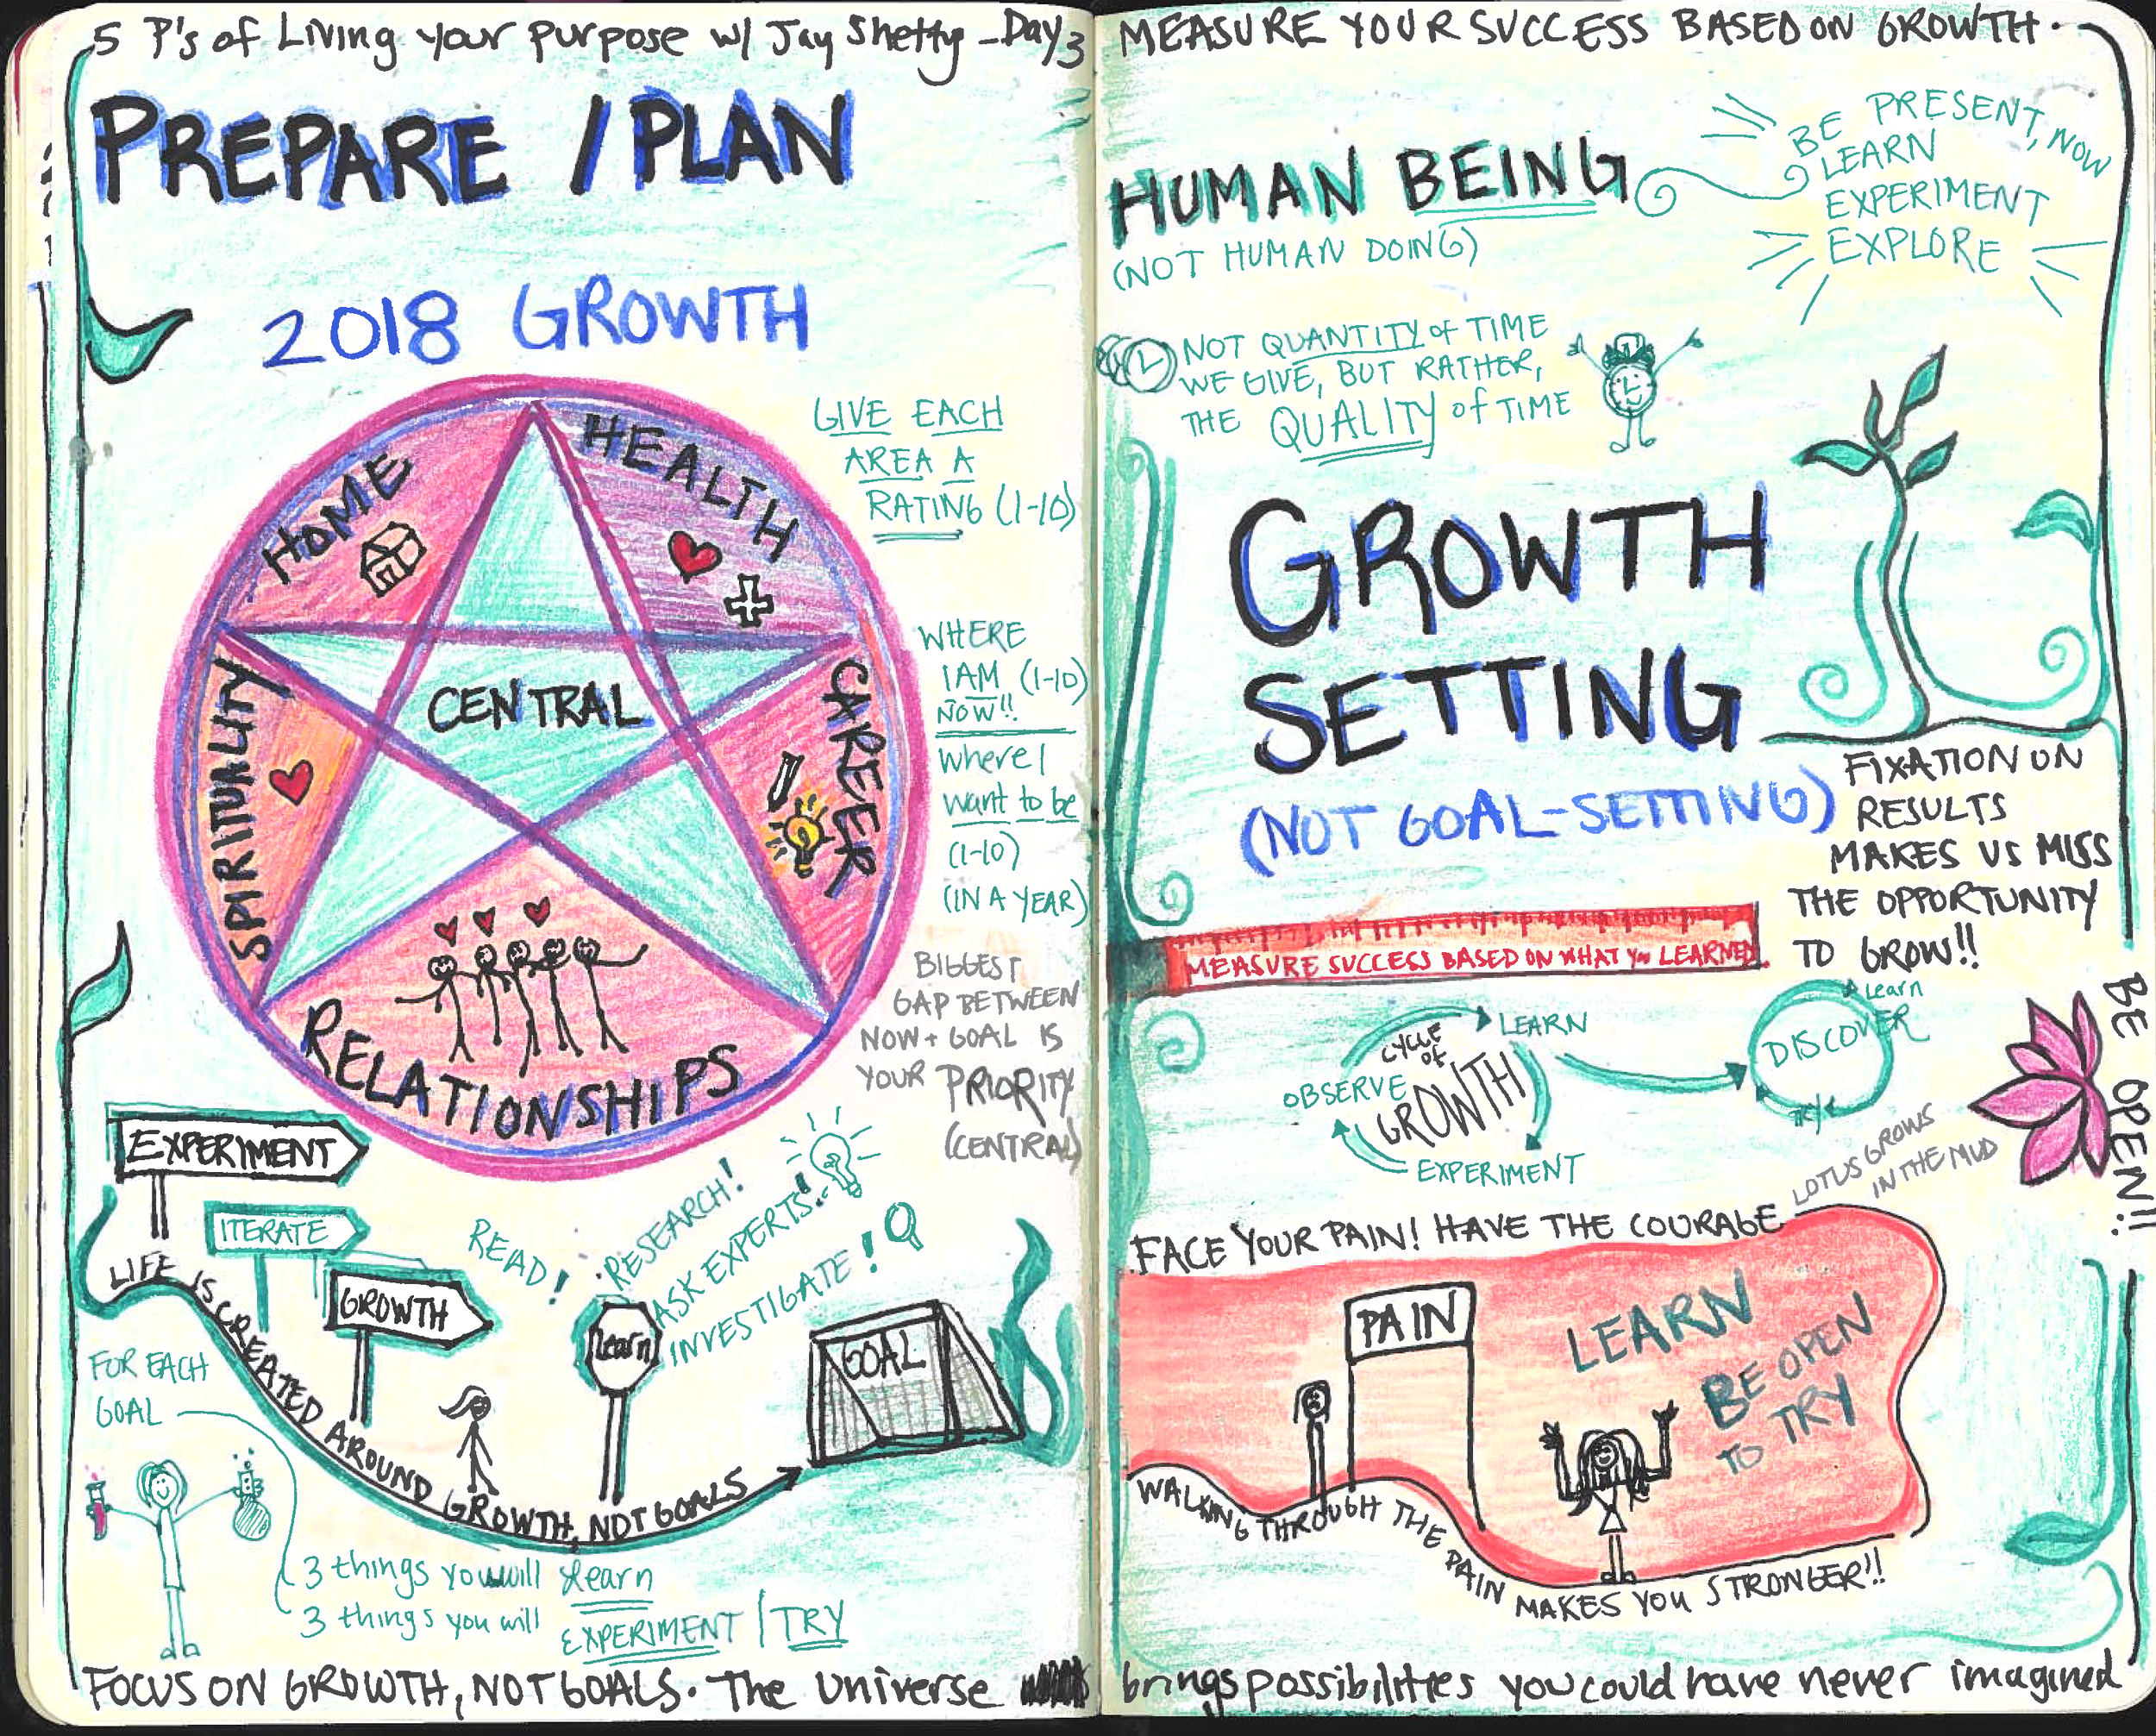 5 P's of Living your purpose w/ Jay Shetty - Day 3
PREPARE / PLAN
2018 GROWTH
HOME
HEALTH
CAREER
RELATIONSHIPS
SPIRITUALITY
CENTRAL
GIVE EACH
AREA A
RATING (1-10)
WHERE
I AM (1-10)
NOW!!
Where I
want to be
(1-10)
(IN A YEAR)
BIGGEST
GAP BETWEEN
NOW + GOAL IS
YOUR PRIORITY
(CENTRAL)
EXPERIMENT
ITERATE
GROWTH
READ!
RESEARCH!
ASK EXPERTS!
INVESTIGATE!
learn
GOAL
LIFE IS CREATED AROUND GROWTH, NOT GOALS
FOR EACH
GOAL
3 things you will learn
3 things you will EXPERIMENT / TRY
FOCUS ON GROWTH, NOT GOALS. The Universe brings possibilities you could have never imagined
MEASURE YOUR SUCCESS BASED ON GROWTH.
HUMAN BEING
(NOT HUMAN DOING)
BE PRESENT, NOW
LEARN
EXPERIMENT
EXPLORE
NOT QUANTITY of TIME
WE GIVE, BUT RATHER,
THE QUALITY of TIME
GROWTH
SETTING
(NOT GOAL-SETTING)
FIXATION ON
RESULTS
MAKES US MISS
THE OPPORTUNITY
TO GROW!!
MEASURE SUCCESS BASED ON WHAT YOU LEARNED
CYCLE
OF
GROWTH
LEARN
EXPERIMENT
OBSERVE
Learn
DISCOVER
LOTUS GROWS
IN THE MUD
BE OPEN!!
FACE YOUR PAIN! HAVE THE COURAGE
PAIN
LEARN
BE OPEN
TO TRY
WALKING THROUGH THE PAIN MAKES YOU STRONGER!!